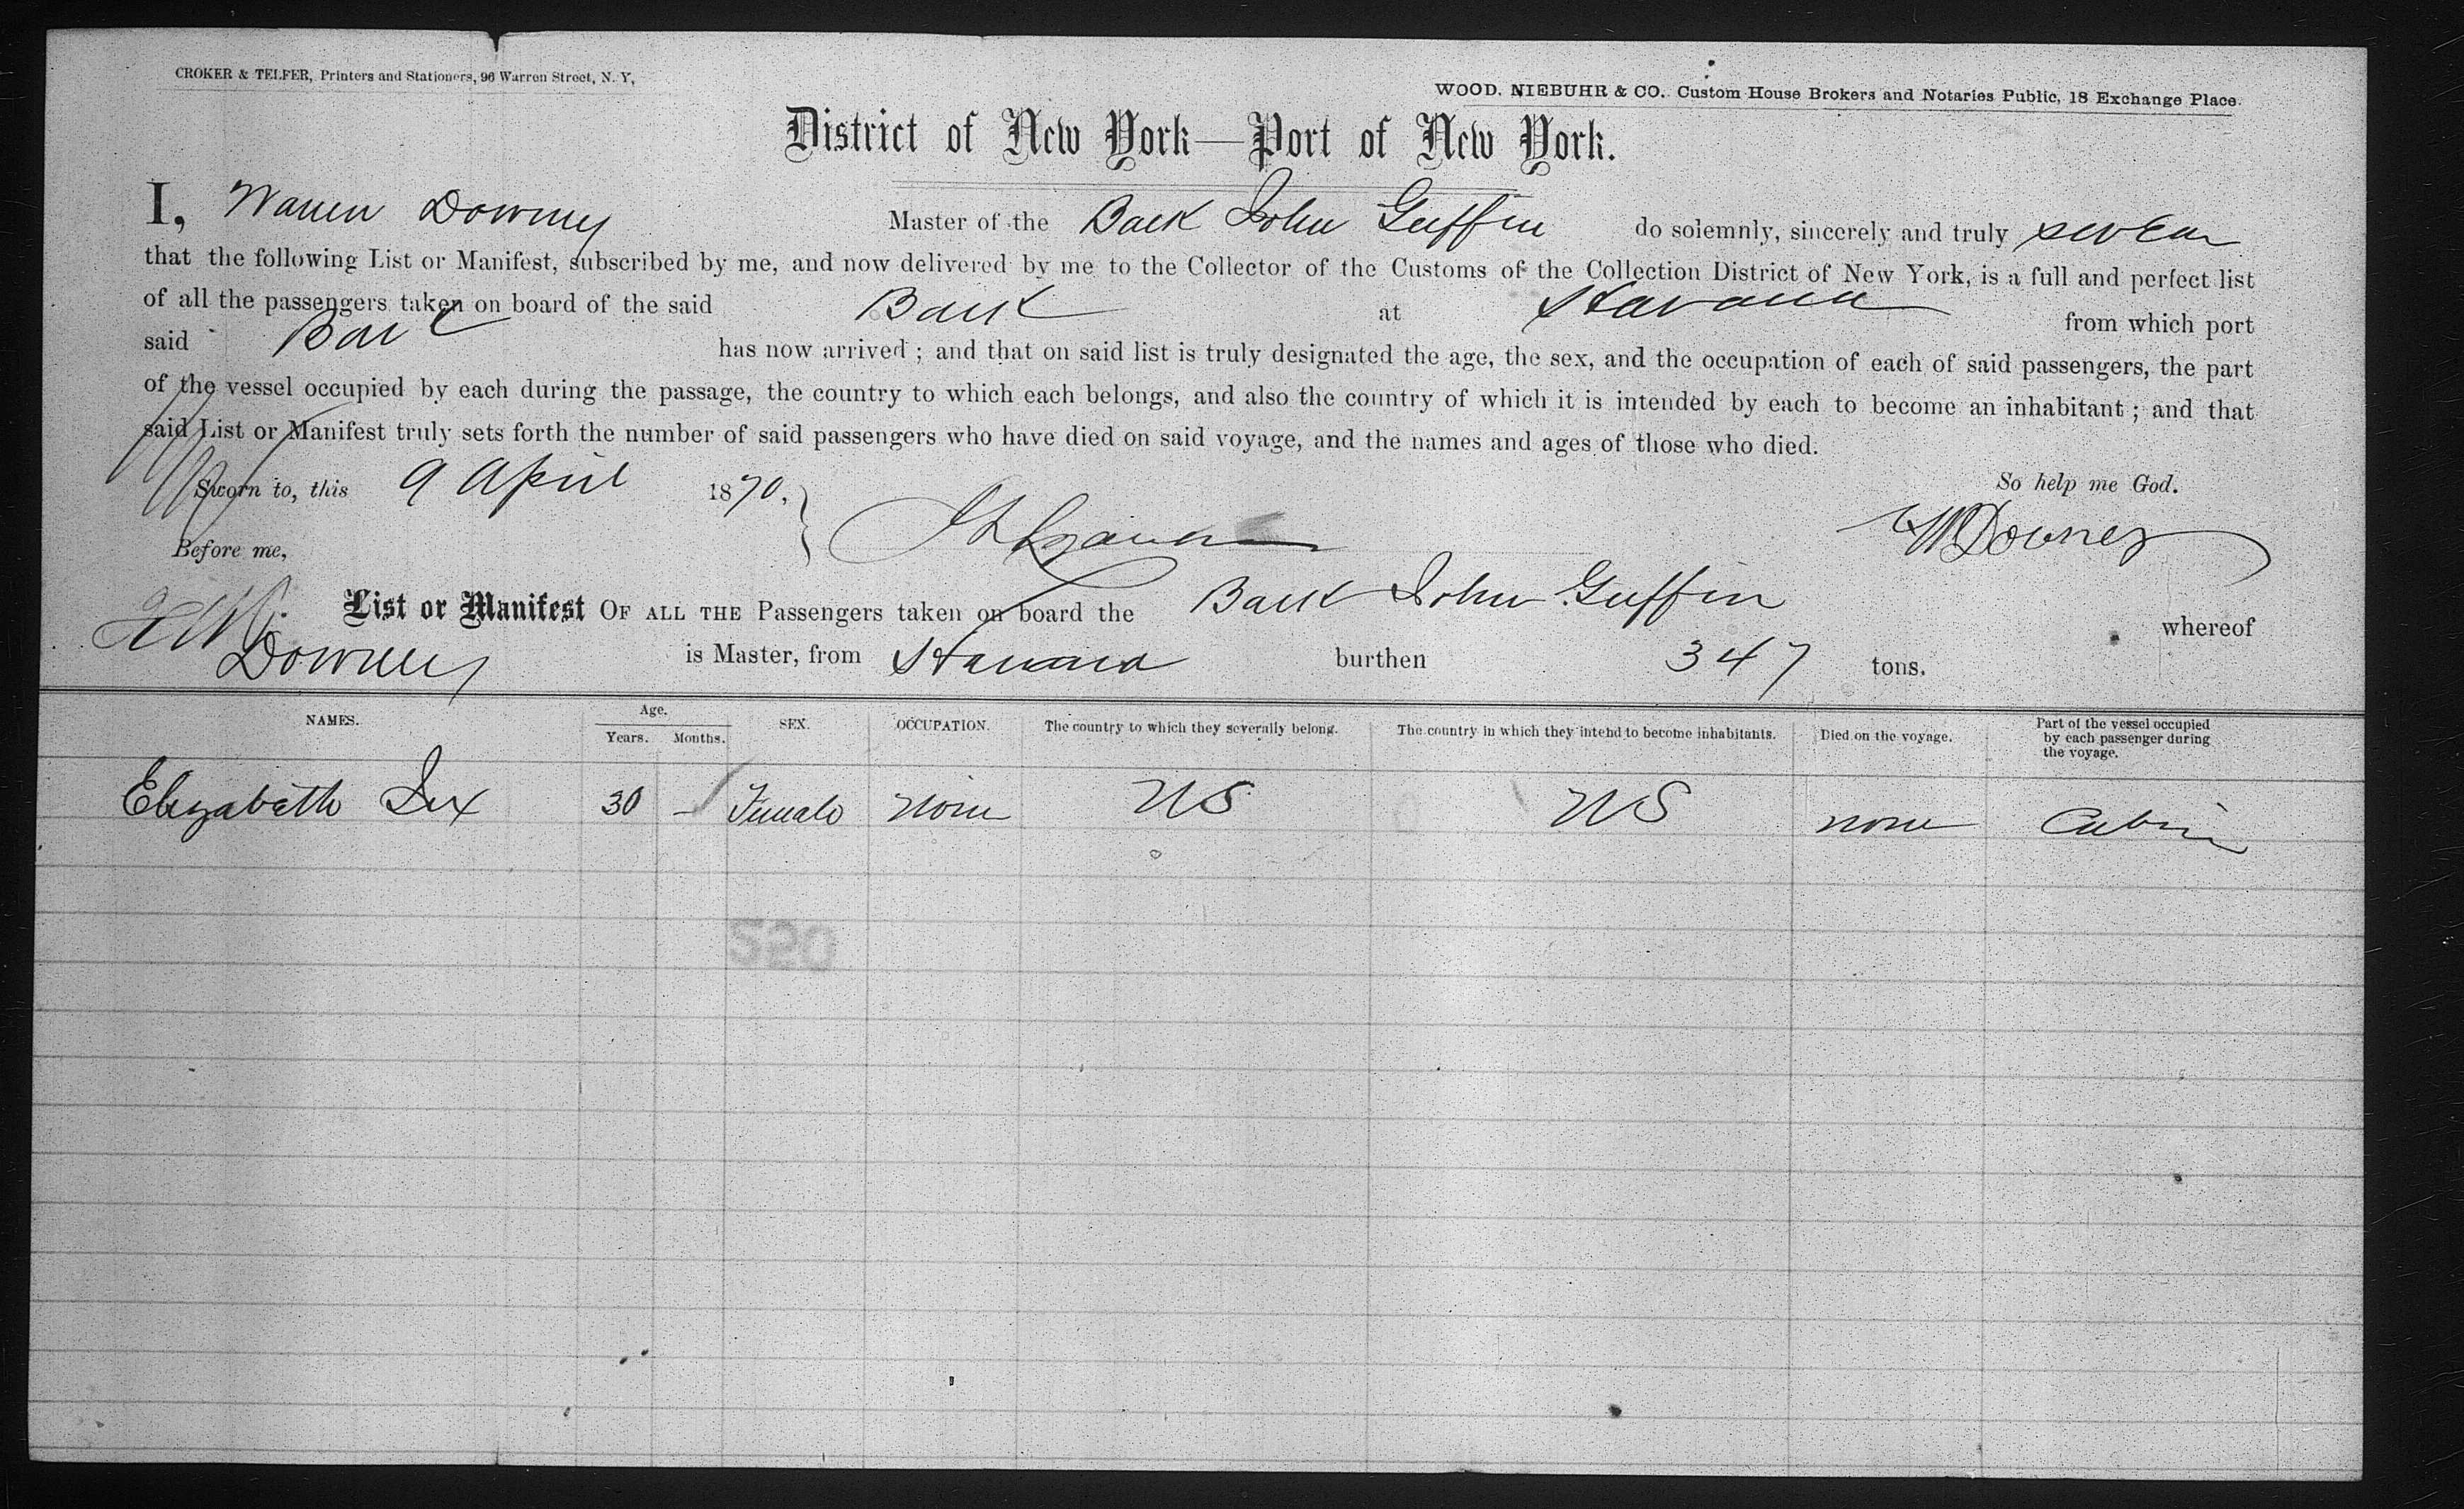 CROKER & TELFER, Printers and Stationers, 96 Warren Street, N. Y,
WOOD, NIEBUHR & CO. Custom House Brokers and Notaries Public, 18 Exchange Place.
District of New York—Port of New York.
I, Warren Downey Master of the Bark John Guffin do solemnly, sincerely and truly swear
that the following List or Manifest, subscribed by me, and now delivered by me to the Collector of the Customs of the Collection District of New York, is a full and perfect list
of all the passengers taken on board of the said Bark at Havana from which port
said Bark has now arrived ; and that on said list is truly designated the age, the sex, and the occupation of each of said passengers, the part
of the vessel occupied by each during the passage, the country to which each belongs, and also the country of which it is intended by each to become an inhabitant ; and that
said List or Manifest truly sets forth the number of said passengers who have died on said voyage, and the names and ages of those who died.
Sworn to, this 9 April 1870. So help me God.
Before me, W Downey
List or Manifest OF ALL THE Passengers taken on board the Bark John Guffin whereof
Downey is Master, from Havana burthen 347 tons.
NAMES. Age. Years. Months. SEX. OCCUPATION. The country to which they severally belong. The country in which they intend to become inhabitants. Died on the voyage. Part of the vessel occupied by each passenger during the voyage.
Elizabeth 30 - Female None US US none Cabin